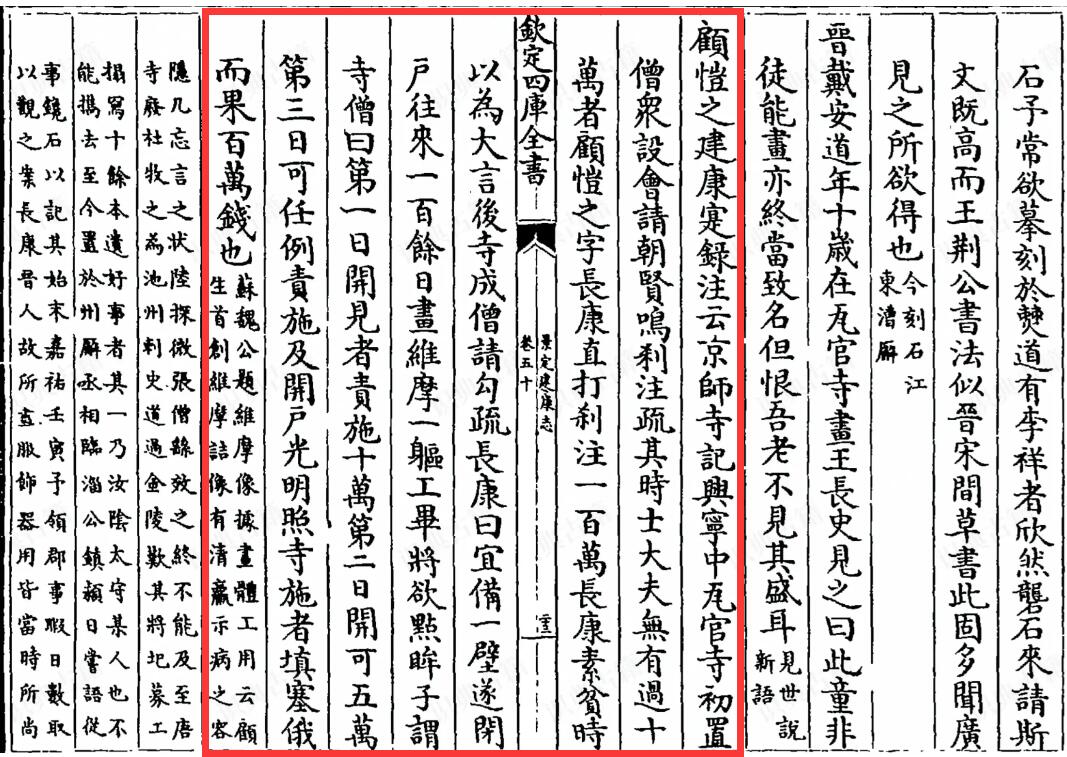 石予常欲摹刻於僰道有李祥者欣然礱石來請斯
文既高而王荆公書法似晉宋間草書此固多聞廣
見之所欲得也今刻石江
東漕廨
晉戴安道年十歲在瓦官寺畫王長史見之曰此童非
徒能畫亦終當致名但恨吾老不見其盛耳見世說
新語
顧愷之建康寔録注云京師寺記興寧中瓦官寺初置
僧衆設會請朝賢鳴刹注疏其時士大夫無有過十
萬者顧愷之字長康直打刹注一百萬長康素貧時
欽定四庫全書
景定建康志
卷五十
以為大言後寺成僧請勾疏長康曰宜備一壁遂閉
戸往來一百餘日畫維摩一軀工畢將欲點眸子謂
寺僧曰第一日開見者責施十萬第二日開可五萬
第三日可任例責施及開戸光明照寺施者填塞俄
而果百萬錢也蘇魏公題維摩像據畫體工用云顧
生首創維摩詰像有清羸示病之容
隱几忘言之狀陸探微張僧繇效之終不能及至唐
寺廢杜牧之為池州刺史道過金陵歎其將圯募工
搨寫十餘本遺好事者其一乃汝陰太守某人也不
能攜去至今置於州廨丞相臨淄公鎮潁日嘗語從
事鐃石以記其始末嘉祐壬寅予領郡事暇日數取
以觀之案長康晉人故所畫服飾器用皆當時所尚